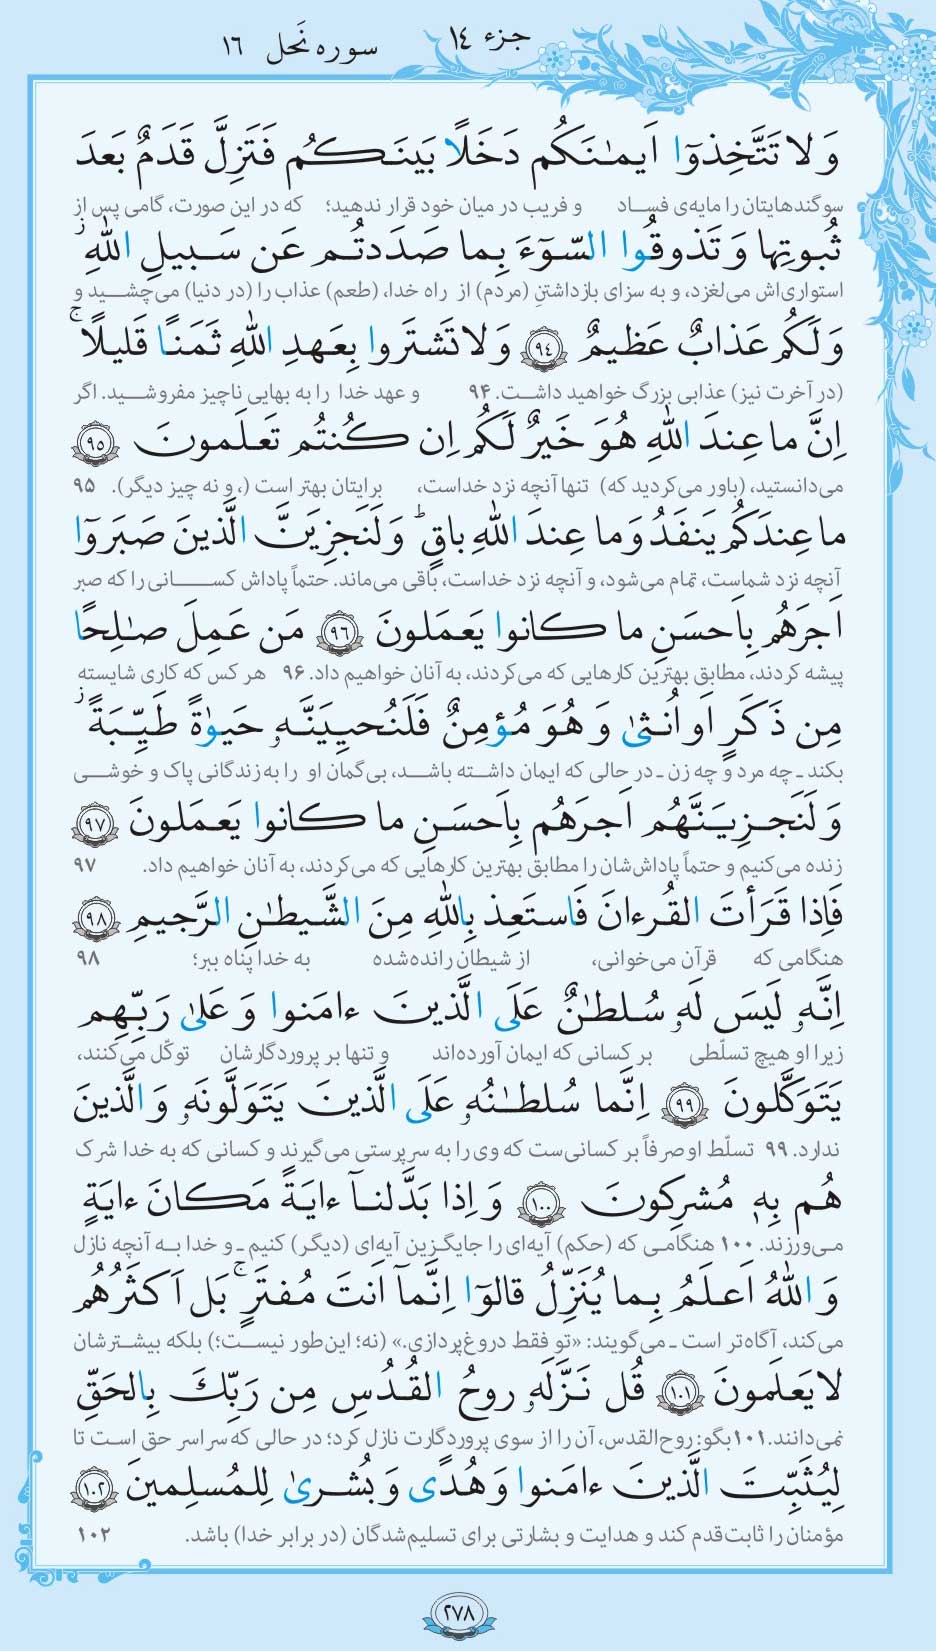 جزء ۱۴
سوره نَحل ۱۶
وَ لا تَتَّخِذوٓا اَيمٰنَكُم دَخَلًا بَينَكُم فَتَزِلَّ قَدَمٌ بَعدَ
سوگندهایتان را مایه‌ی فساد و فریب در میان خود قرار ندهید؛ که در این صورت، گامی پس از
ثُبوتِها وَ تَذوقُوا السّوٓءَ بِما صَدَدتُم عَن سَبيلِ اللهِ ز
استواری‌اش می‌لغزد، و به سزای بازداشتنِ (مردم) از راه خدا، (طعم) عذاب را (در دنیا) می‌چشید و
وَ لَكُم عَذابٌ عَظيمٌ ۹۴ وَ لا تَشتَروا بِعَهدِ اللهِ ثَمَنًا قَليلًا ج
(در آخرت نیز) عذابی بزرگ خواهید داشت. ۹۴ و عهد خدا را به بهایی ناچیز مفروشید. اگر
اِنَّ ما عِندَ اللهِ هُوَ خَيرٌ لَكُم اِن كُنتُم تَعلَمونَ ۹۵
می‌دانستید، (باور می‌کردید که) تنها آنچه نزد خداست، برایتان بهتر است (، و نه چیز دیگر). ۹۵
ما عِندَكُم يَنفَدُ وَ ما عِندَ اللهِ باقٍ ط وَ لَنَجزِيَنَّ الَّذينَ صَبَروٓا
آنچه نزد شماست، تمام می‌شود، و آنچه نزد خداست، باقی می‌ماند. حتماً پاداش کسانی را که صبر
اَجرَهُم بِاَحسَنِ ما كانوا يَعمَلونَ ۹۶ مَن عَمِلَ صٰلِحًا
پیشه کردند، مطابق بهترین کارهایی که می‌کردند، به آنان خواهیم داد. ۹۶ هر کس که کاری شایسته
مِن ذَكَرٍ اَو اُنثىٰ وَ هُوَ مُؤمِنٌ فَلَنُحيِيَنَّهۥ حَيوٰةً طَيِّبَةً ز
بکند ـ چه مرد و چه زن ـ در حالی که ایمان داشته باشد، بی‌گمان او را به زندگانی پاک و خوشی
وَ لَنَجزِيَنَّهُم اَجرَهُم بِاَحسَنِ ما كانوا يَعمَلونَ ۹۷
زنده می‌کنیم و حتماً پاداش‌شان را مطابق بهترین کارهایی که می‌کردند، به آنان خواهیم داد. ۹۷
فَاِذا قَرَأتَ القُرءانَ فَاستَعِذ بِاللهِ مِنَ الشَّيطٰنِ الرَّجيمِ ۹۸
هنگامی که قرآن می‌خوانی، از شیطان رانده‌شده به خدا پناه ببر؛ ۹۸
اِنَّهۥ لَيسَ لَهۥ سُلطٰنٌ عَلَى الَّذينَ ءامَنوا وَ عَلىٰ رَبِّهِم
زیرا او هیچ تسلّطی بر کسانی که ایمان آورده‌اند و تنها بر پروردگارشان توکّل می‌کنند،
يَتَوَكَّلونَ ۹۹ اِنَّما سُلطٰنُهۥ عَلَى الَّذينَ يَتَوَلَّونَهۥ وَ الَّذينَ
ندارد. ۹۹ تسلّط او صرفاً بر کسانی‌ست که وی را به سرپرستی می‌گیرند و کسانی که به خدا شرک
هُم بِهٖ مُشرِكونَ ۱۰۰ وَ اِذا بَدَّلنآ ءايَةً مَكانَ ءايَةٍ
می‌ورزند. ۱۰۰ هنگامی که (حکم) آیه‌ای را جایگزین آیه‌ای (دیگر) کنیم ـ و خدا به آنچه نازل
وَ اللهُ اَعلَمُ بِما يُنَزِّلُ قالوٓا اِنَّمآ اَنتَ مُفتَرٍ ج بَل اَكثَرُهُم
می‌کند، آگاه‌تر است ـ می‌گویند: «تو فقط دروغ‌پردازی.» (نه؛ این‌طور نیست؛) بلکه بیشترشان
لا يَعلَمونَ ۱۰۱ قُل نَزَّلَهۥ روحُ القُدُسِ مِن رَبِّكَ بِالحَقِّ
نمی‌دانند. ۱۰۱ بگو: روح‌القدس، آن را از سوی پروردگارت نازل کرد؛ در حالی که سراسر حق است تا
لِيُثَبِّتَ الَّذينَ ءامَنوا وَ هُدًى وَ بُشرىٰ لِلمُسلِمينَ ۱۰۲
مؤمنان را ثابت‌قدم کند و هدایت و بشارتی برای تسلیم‌شدگان (در برابر خدا) باشد. ۱۰۲
۲۷۸